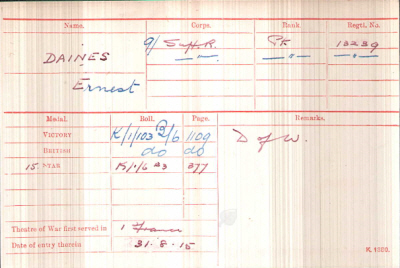 Name. Corps. Rank. Regtl. No.
DAINES 9/ S.H.R. Pte 13239
Ernest —"— —"— —"—
Medal. Roll. Page. Remarks.
VICTORY K/1/103 B2/6 1109 D of W.
BRITISH do do
15 STAR K/1/6 377
Theatre of War first served in 1 France
Date of entry therein 31.8.15
K. 1380.